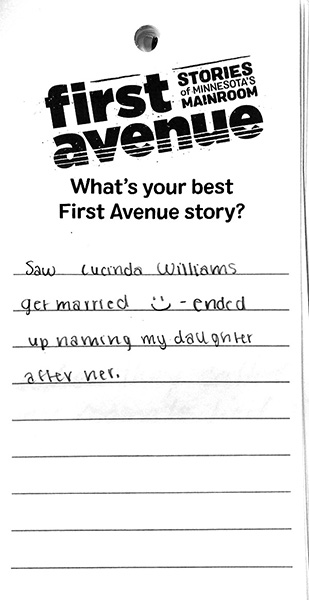 first
avenue
STORIES
OF MINNESOTA'S
MAINROOM
What's your best
First Avenue story?
Saw Lucinda Williams
get married :) - ended
up naming my daughter
after her.